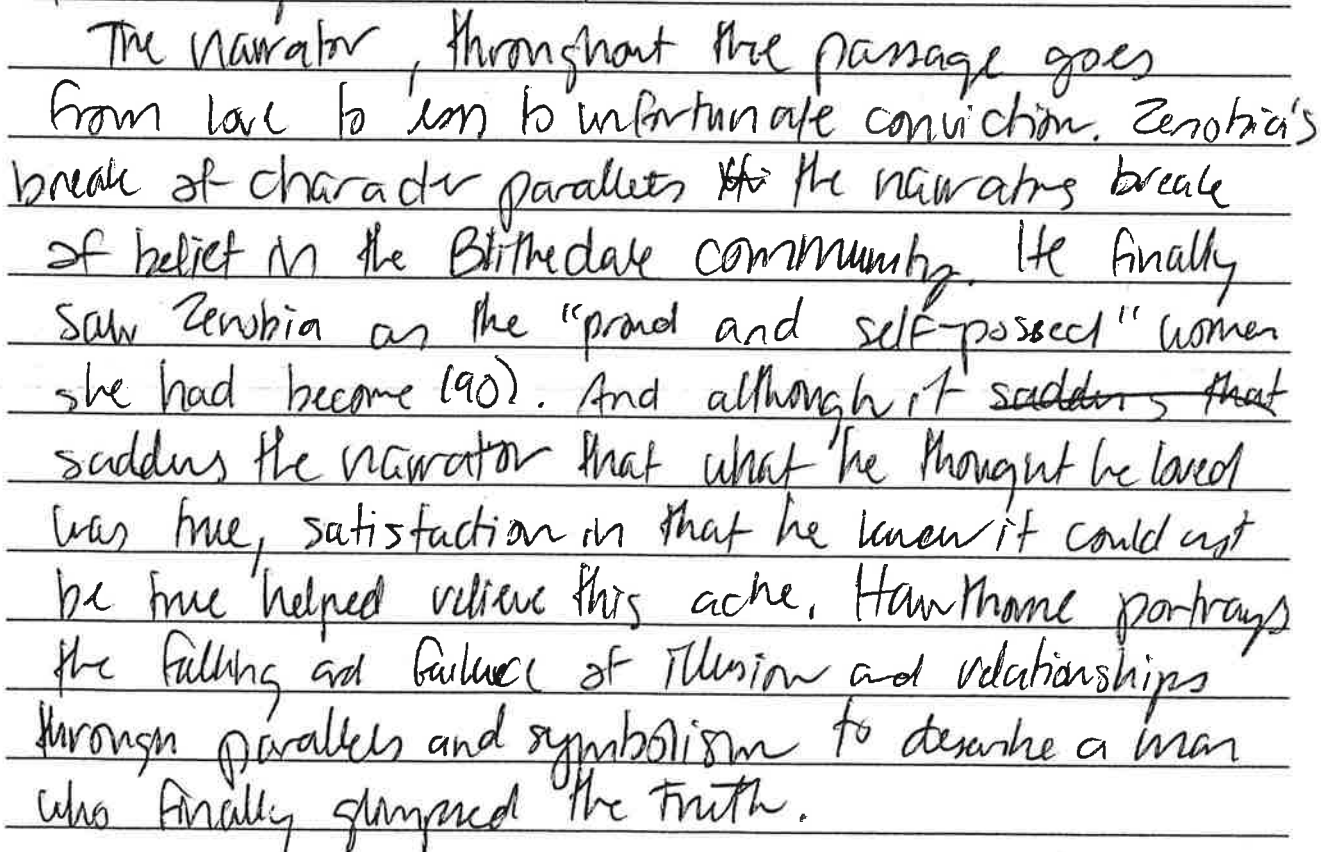 The narrator, throughout the passage goes
from love to loss to unfortunate conviction. Zenobia's
break of character parallels the narrators break
of belief in the Blithedale community. He finally
saw Zenobia as the "proud and self-possed" women
she had become (90). And although it saddens that
saddens the narrator that what he thought he loved
was true, satisfaction in that he knew it could not
be true helped relieve this ache. Hawthorne portrays
the falling and failure of illusion and relationships
through parallels and symbolism to describe a man
who finally glimpsed the truth.